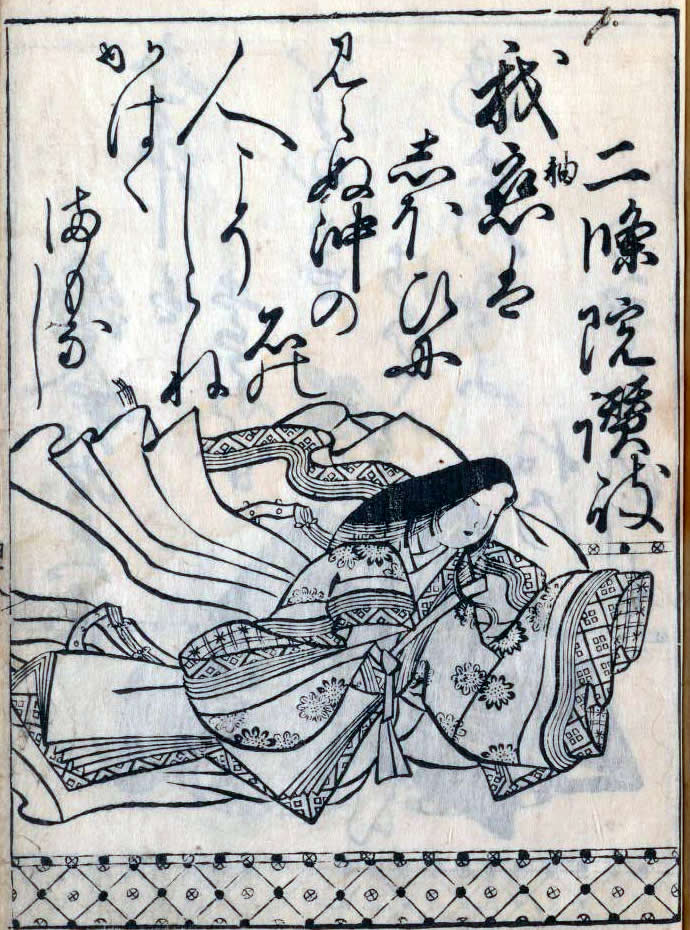 二條院讃岐
我恋は
袖
しほひに
見えぬ沖の
石の
人こそ
しらね
かはく
まもなし